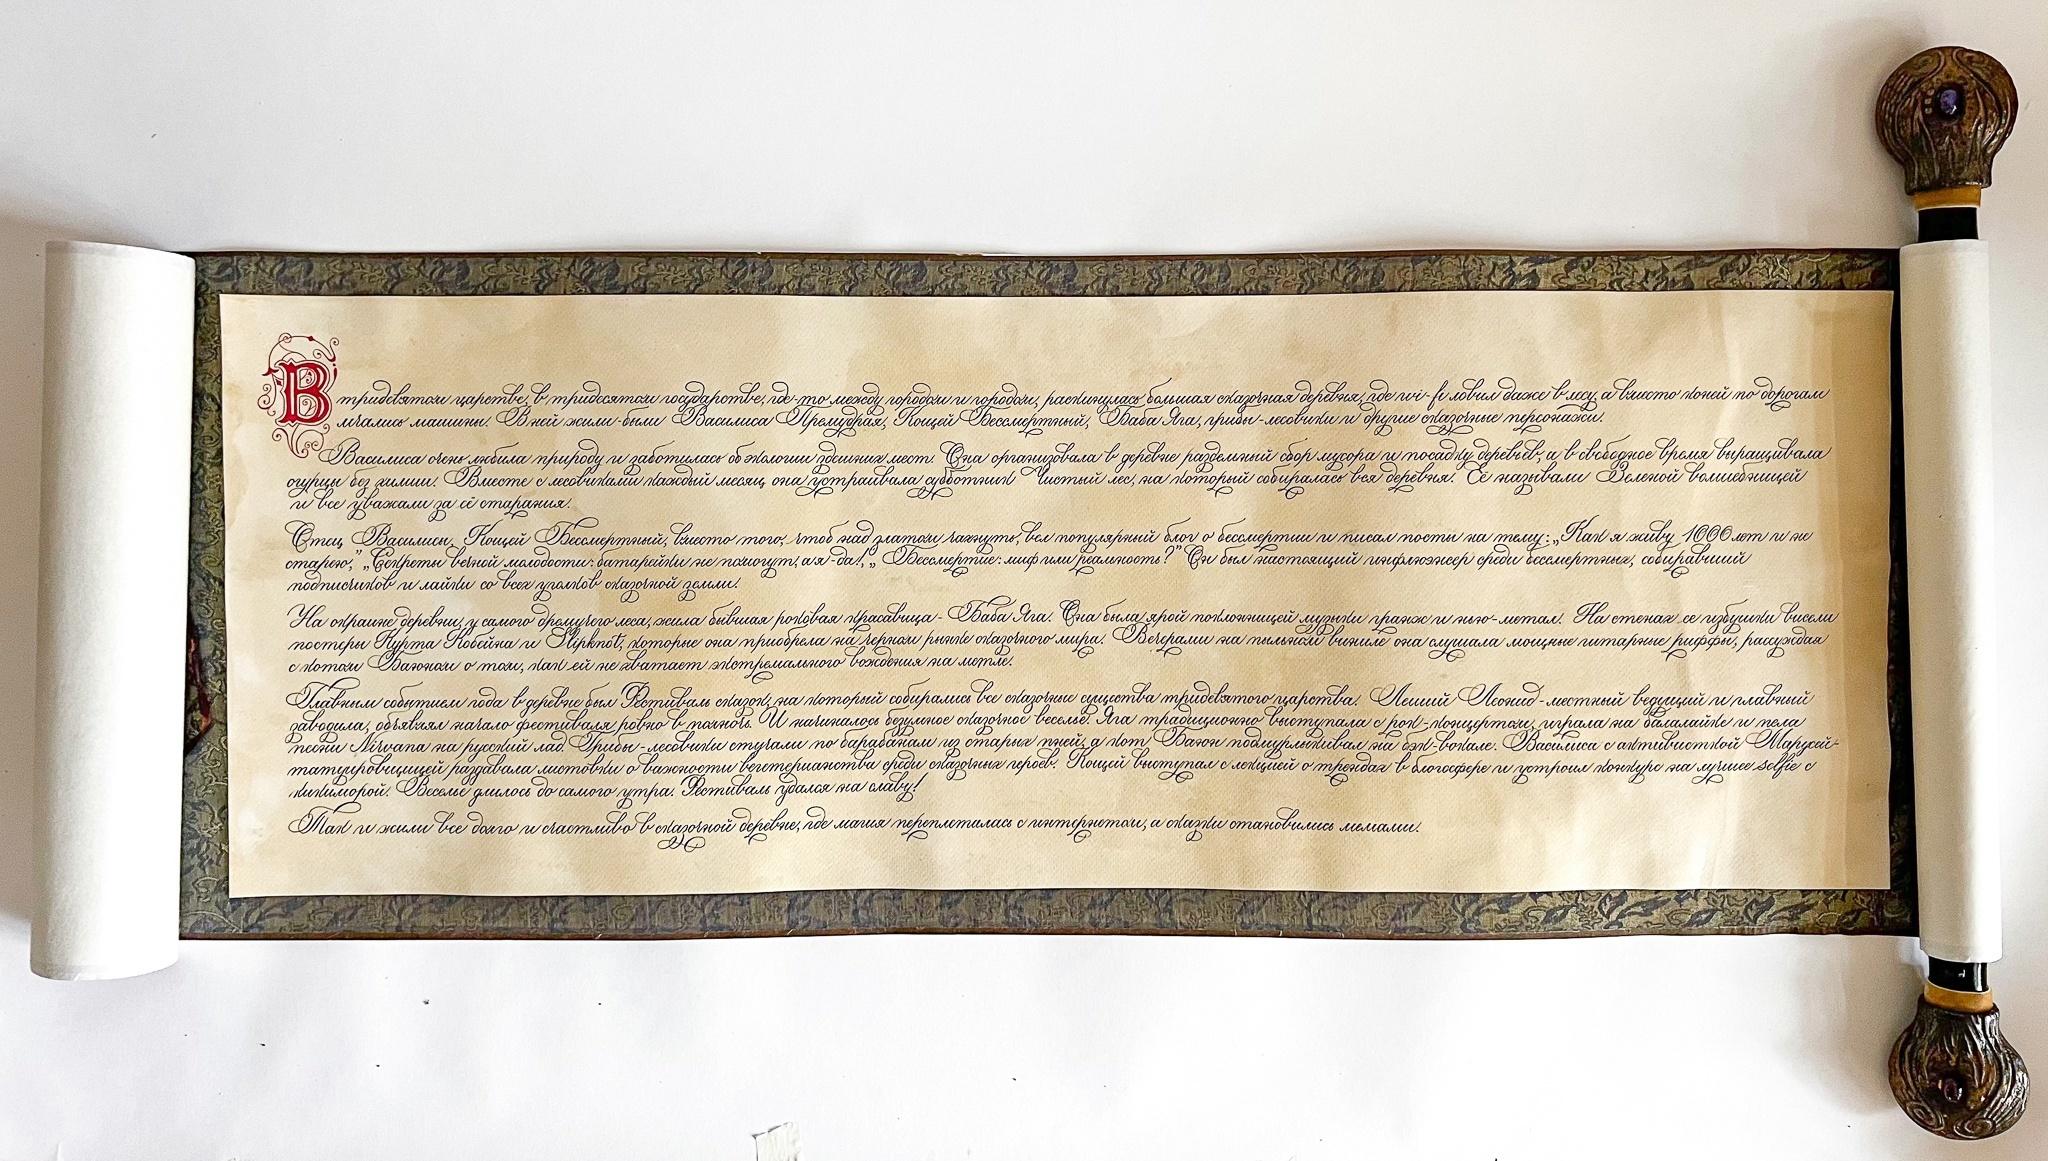 В тридевятом царстве, в тридесятом государстве, где-то между городом и городом, раскинулась большая сказочная деревня, где wi-fi ловил даже в лесу, а вместо коней по дорогам
мчались машины. В ней жили-были Василиса Премудрая, Кощей Бессмертный, Баба Яга, грибы-лесовики и другие сказочные персонажи.
Василиса очень любила природу и заботилась об экологии здешних мест. Она организовала в деревне раздельный сбор мусора и посадку деревьев, а в свободное время выращивала
огурцы без химии. Вместе с лесовиками каждый месяц она устраивала субботник Чистый лес, на который собиралась вся деревня. Её называли Зеленой волшебницей
и все уважали за её старания.
Отец Василисы, Кощей Бессмертный, вместо того, чтоб над златом чахнуть, вел популярный блог о бессмертии и писал посты на тему: „Как я живу 1000 лет и не
старею," „Секреты вечной молодости: батарейки не помогут, а я-да!„ „Бессмертие: миф или реальность?" Он был настоящий инфлюэнсер среди бессмертных, собиравший
подписчиков и лайки со всех уголков сказочной земли!
На окраине деревни, у самого дремучего леса, жила бывшая роковая красавица - Баба Яга. Она была ярой поклонницей музыки гранж и нью-метал. На стенах её избушки висели
постеры Курта Кобейна и Slipknot, которые она приобрела на черном рынке сказочного мира. Вечерами на пыльном виниле она слушала мощные гитарные риффы, рассуждая
с котом Баюном о том, как ей не хватает экстремального вождения на метле.
Главным событием года в деревне был Фестиваль сказок, на который собирались все сказочные существа тридевятого царства. Леший Леонид-местный ведущий и главный
заводила, объявлял начало фестиваля ровно в полночь. И начиналось безумное сказочное веселье. Яга традиционно выступала с рок-концертом, играла на балалайке и пела
песни Nirvana на русский лад. Грибы-лесовики стучали по барабанам из старых пней, а кот Баюн подмурлыкивал на бэк-вокале. Василиса с активисткой Марусей-
татуировщицей раздавала листовки о важности вегетерианства среди сказочных героев. Кощей выступал с лекцией о трендах в блогосфере и устроил конкурс на лучшее selfie с
кикиморой. Веселье длилось до самого утра. Фестиваль удался на славу!
Так и жили все долго и счастливо в сказочной деревне, где магия переплеталась с интернетом, а сказки становились мемами.